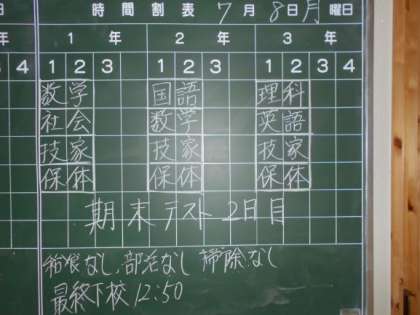 日 時間割表 7月8日月曜日
年 1年 2年 3年
3 4 1 2 3 1 2 3 1 2 3 4
数学 国語 理科
社会 数学 英語
技家 技家 技家
保体 保体 保体
期末テスト2日目
給食なし、部活なし 掃除なし
最終下校12:50